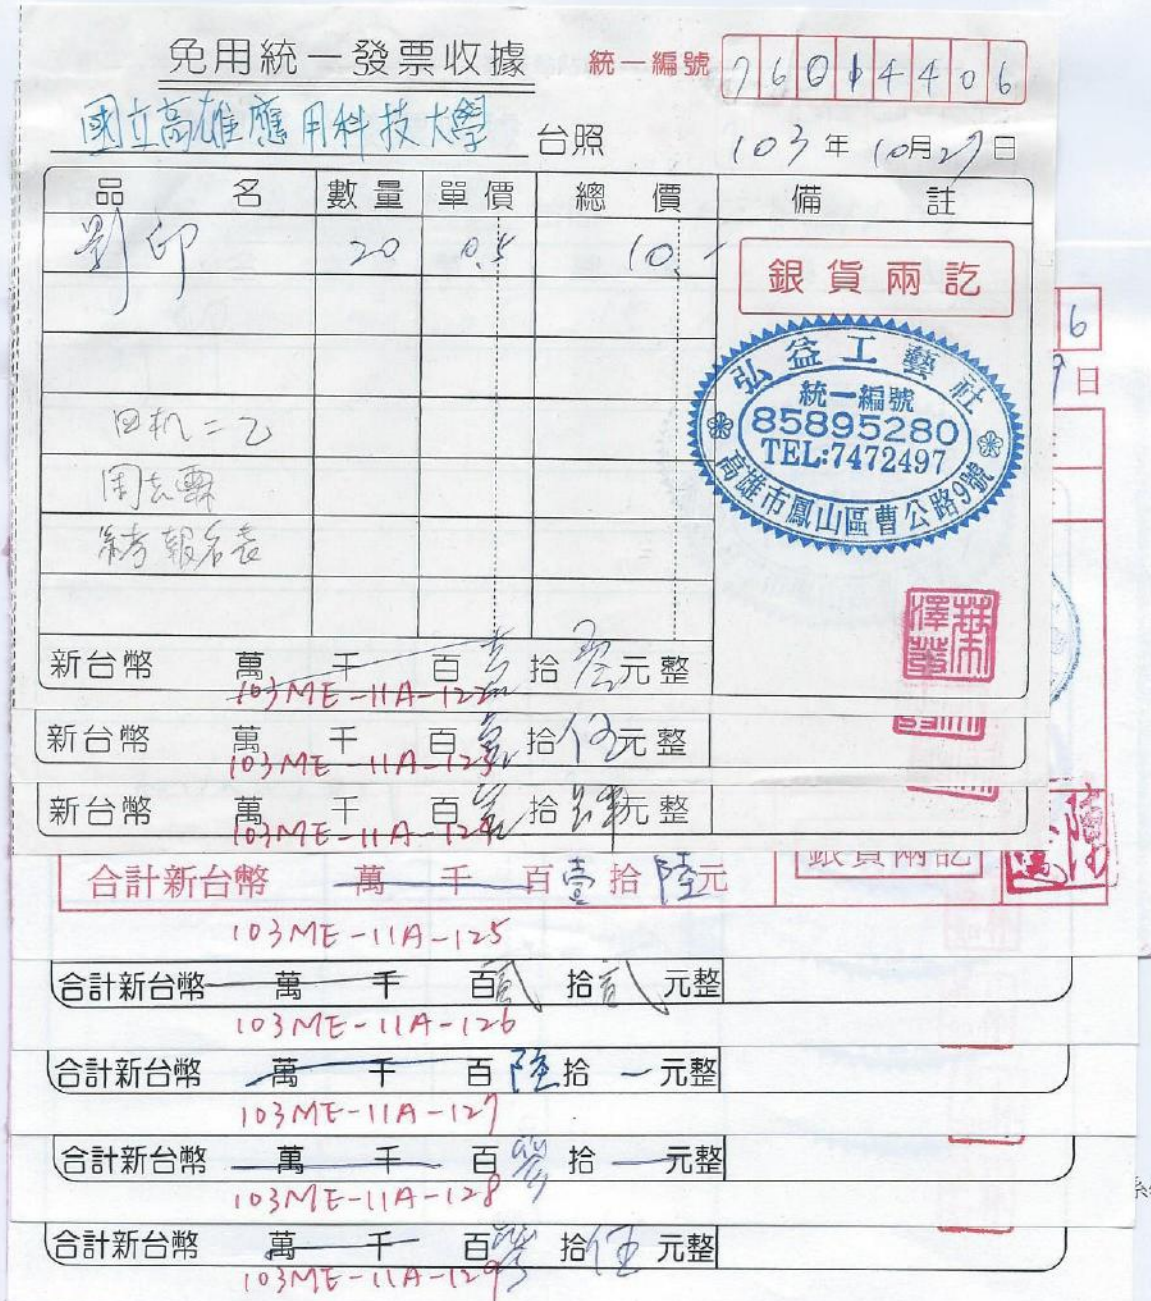 免用統一發票收據 統一編號 76014406
國立高雄應用科技大學 台照 103年10月27日
品名 數量 單價 總價 備註
影印 20 0.5 10.-
銀貨兩訖
弘益工藝社
統一編號
85895280
TEL:7472497
高雄市鳳山區曹公路9號
四机二乙
報名表
新台幣 萬 千 百 壹 拾 零 元整
103ME-11A-122
6
日
新台幣 萬 千 百 拾 伍 元整
103ME-11A-123
新台幣 萬 千 百 拾 肆 元整
103ME-11A-124
合計新台幣 萬 千 百 壹 拾 陸 元
銀貨兩訖
103ME-11A-125
合計新台幣 萬 千 百 貳 拾 貳 元整
103ME-11A-126
合計新台幣 萬 千 百 陸 拾 元整
103ME-11A-127
合計新台幣 萬 千 百 拾 元整
103ME-11A-128
合計新台幣 萬 千 百 拾 伍 元整
103ME-11A-129